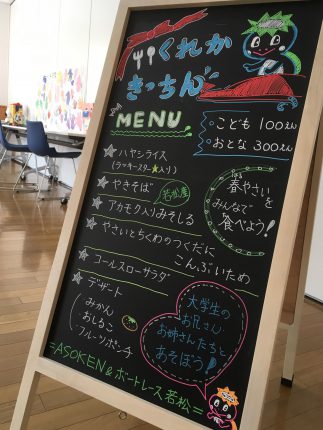 くれか
きっちん
MENU
こども 100えん
おとな 300えん
ハヤシライス
(ラッキースター入り)
やきそば
若松産
アカモク入りみそしる
春やさいを
みんなで
食べよう!
やさいとちくわのつくだに
こんぶいため
コールスローサラダ
デザート
(みかん
おしるこ
フルーツポンチ)
大学生の
お兄さん
お姉さんたちと
あそぼう!
=ASOKEN&ボートレース若松=